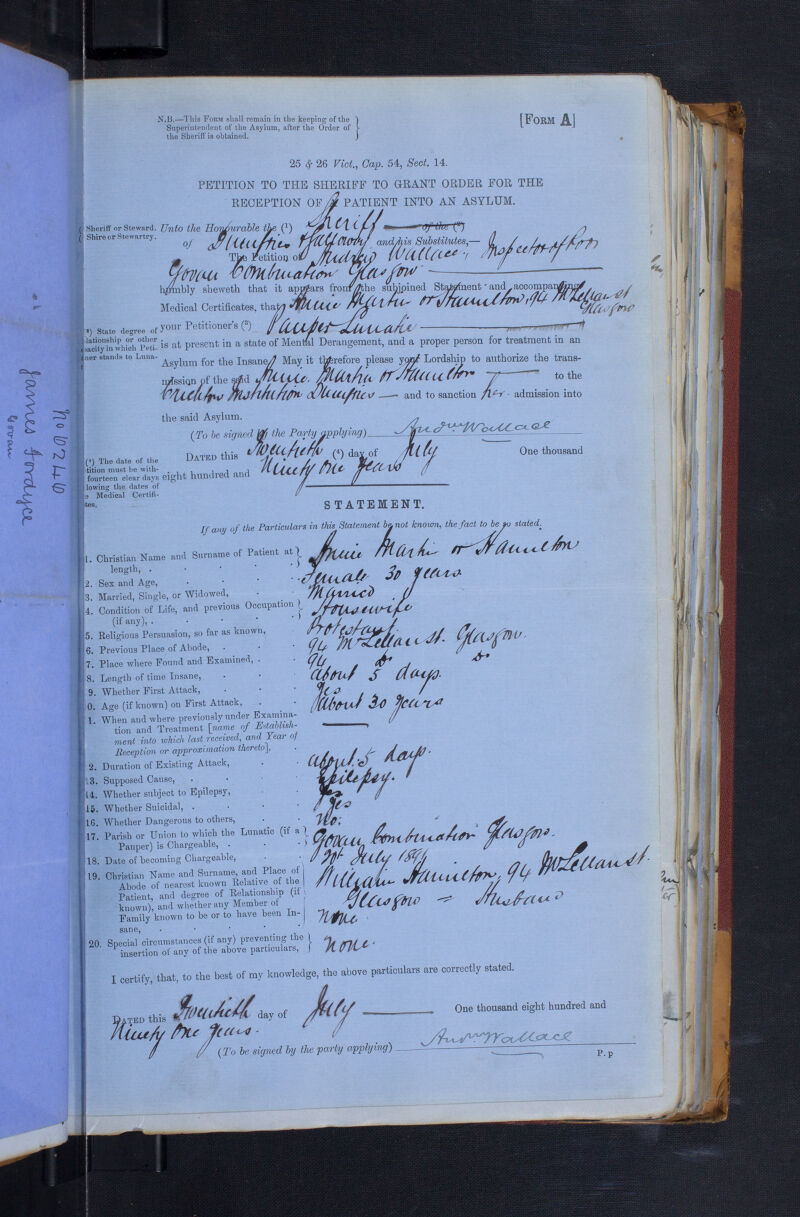 N.B.—This Form shall remain in the keeping of the
Superintendent of the Asylum, after the Order of
the Sheriff is obtained.
[Form A]
25 & 26 Vict., Cap. 54, Sect. 14.
PETITION TO THE SHERIFF TO GRANT ORDER FOR THE
RECEPTION OF A PATIENT INTO AN ASYLUM.
Sheriff or Steward.
Shire or Stewartry.
Unto the Honourable the (1) Sheriff of the (2)
of Dumfries & Galloway and his Substitutes,—
The Petition of Andrew Wallace, Inspector of Poor
Govan Combination Glasgow
humbly sheweth that it appears from the subjoined Statement and accompanying
Medical Certificates, that Annie Martin or Hamilton, 94 McLellan st
Glasgow
your Petitioner's (3) Pauper Lunatic
(3) State degree of
lationship or other
pacity in which Peti-
ner stands to Luna-
is at present in a state of Mental Derangement, and a proper person for treatment in an
Asylum for the Insane. May it therefore please your Lordship to authorize the trans-
mission of the said Annie Martin or Hamilton to the
Crichton Institution Dumfries — and to sanction her admission into
the said Asylum.
(To be signed by the Party applying) Andrew Wallace
Dated this Twentieth (4) day of July One thousand
eight hundred and Ninety One Years
(4) The date of the
tition must be with-
fourteen clear days
lowing the dates of
e Medical Certifi-
tes.
STATEMENT.
If any of the Particulars in this Statement be not known, the fact to be so stated.
1. Christian Name and Surname of Patient at
length, . Annie Martin or Hamilton
2. Sex and Age, Female 30 years
3. Married, Single, or Widowed, Married
4. Condition of Life, and previous Occupation
(if any), . Housewife
5. Religious Persuasion, so far as known, Protestant
6. Previous Place of Abode, 94 McLellan st. Glasgow.
7. Place where Found and Examined, 94 do do
8. Length of time Insane, about 5 days.
9. Whether First Attack, Yes
0. Age (if known) on First Attack, About 30 years
1. When and where previously under Examina-
tion and Treatment [name of Establish-
ment into which last received, and Year of
Reception or approximation thereto],
2. Duration of Existing Attack, about 5 days.
13. Supposed Cause, Epilepsy.
14. Whether subject to Epilepsy, Yes
15. Whether Suicidal, Yes
16. Whether Dangerous to others, No.
17. Parish or Union to which the Lunatic (if a
Pauper) is Chargeable, Govan Combination Glasgow.
18. Date of becoming Chargeable, July 1891
19. Christian Name and Surname, and Place of
Abode of nearest known Relative of the
Patient, and degree of Relationship (if
known), and whether any Member of
Family known to be or to have been In-
sane,
William Hamilton, 94 McLellan st.
Glasgow = Husband
None
20. Special circumstances (if any) preventing the
insertion of any of the above particulars, None.
I certify, that, to the best of my knowledge, the above particulars are correctly stated.
Dated this Twentieth day of July One thousand eight hundred and
Ninety One Years.
(To be signed by the party applying) Andrew Wallace
P.p
No 10246
James Fordyce
Govan